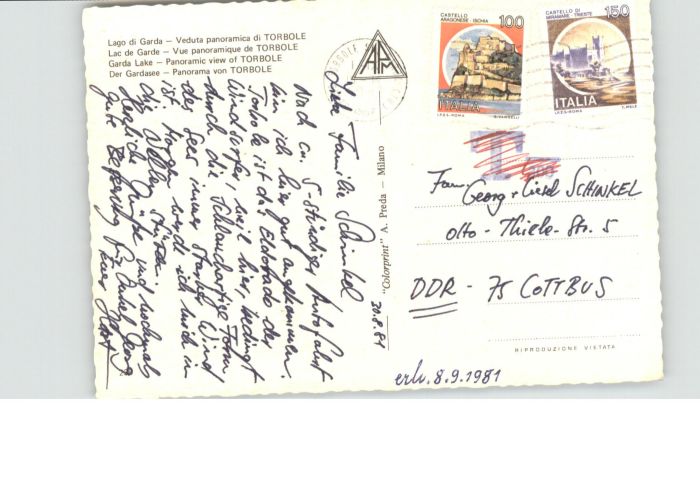 Lago di Garda — Veduta panoramica di TORBOLE
Lac de Garde — Vue panoramique de TORBOLE
Garda Lake — Panoramic view of TORBOLE
Der Gardasee — Panorama von TORBOLE
CASTELLO
ARAGONESE - ISCHIA
100
ITALIA
I.P.Z.S. - ROMA
CASTELLO DI
MIRAMARE - TRIESTE
150
ITALIA
I.P.Z.S. - ROMA
Liebe Familie Schinkel
Nach ca. 5-stündiger Autofahrt
bin ich hier gut angekommen.
Torbole ist das Eldorado der
Windsurfer, weil hier, bedingt
durch die schlauchartige Form
des Sees immer starker Wind
ist. Morgen werd ich mich in
die Wellen stürzen.
Herzliche Grüße und nochmals
gute Besserung für Onkel Georg
Euer Horst
30.8.81
"Colorprint" A. Preda — Milano
Fam. Georg + Liesel SCHINKEL
Otto - Thiele - Str. 5
DDR - 75 COTTBUS
RIPRODUZIONE VIETATA
erh. 8.9.1981